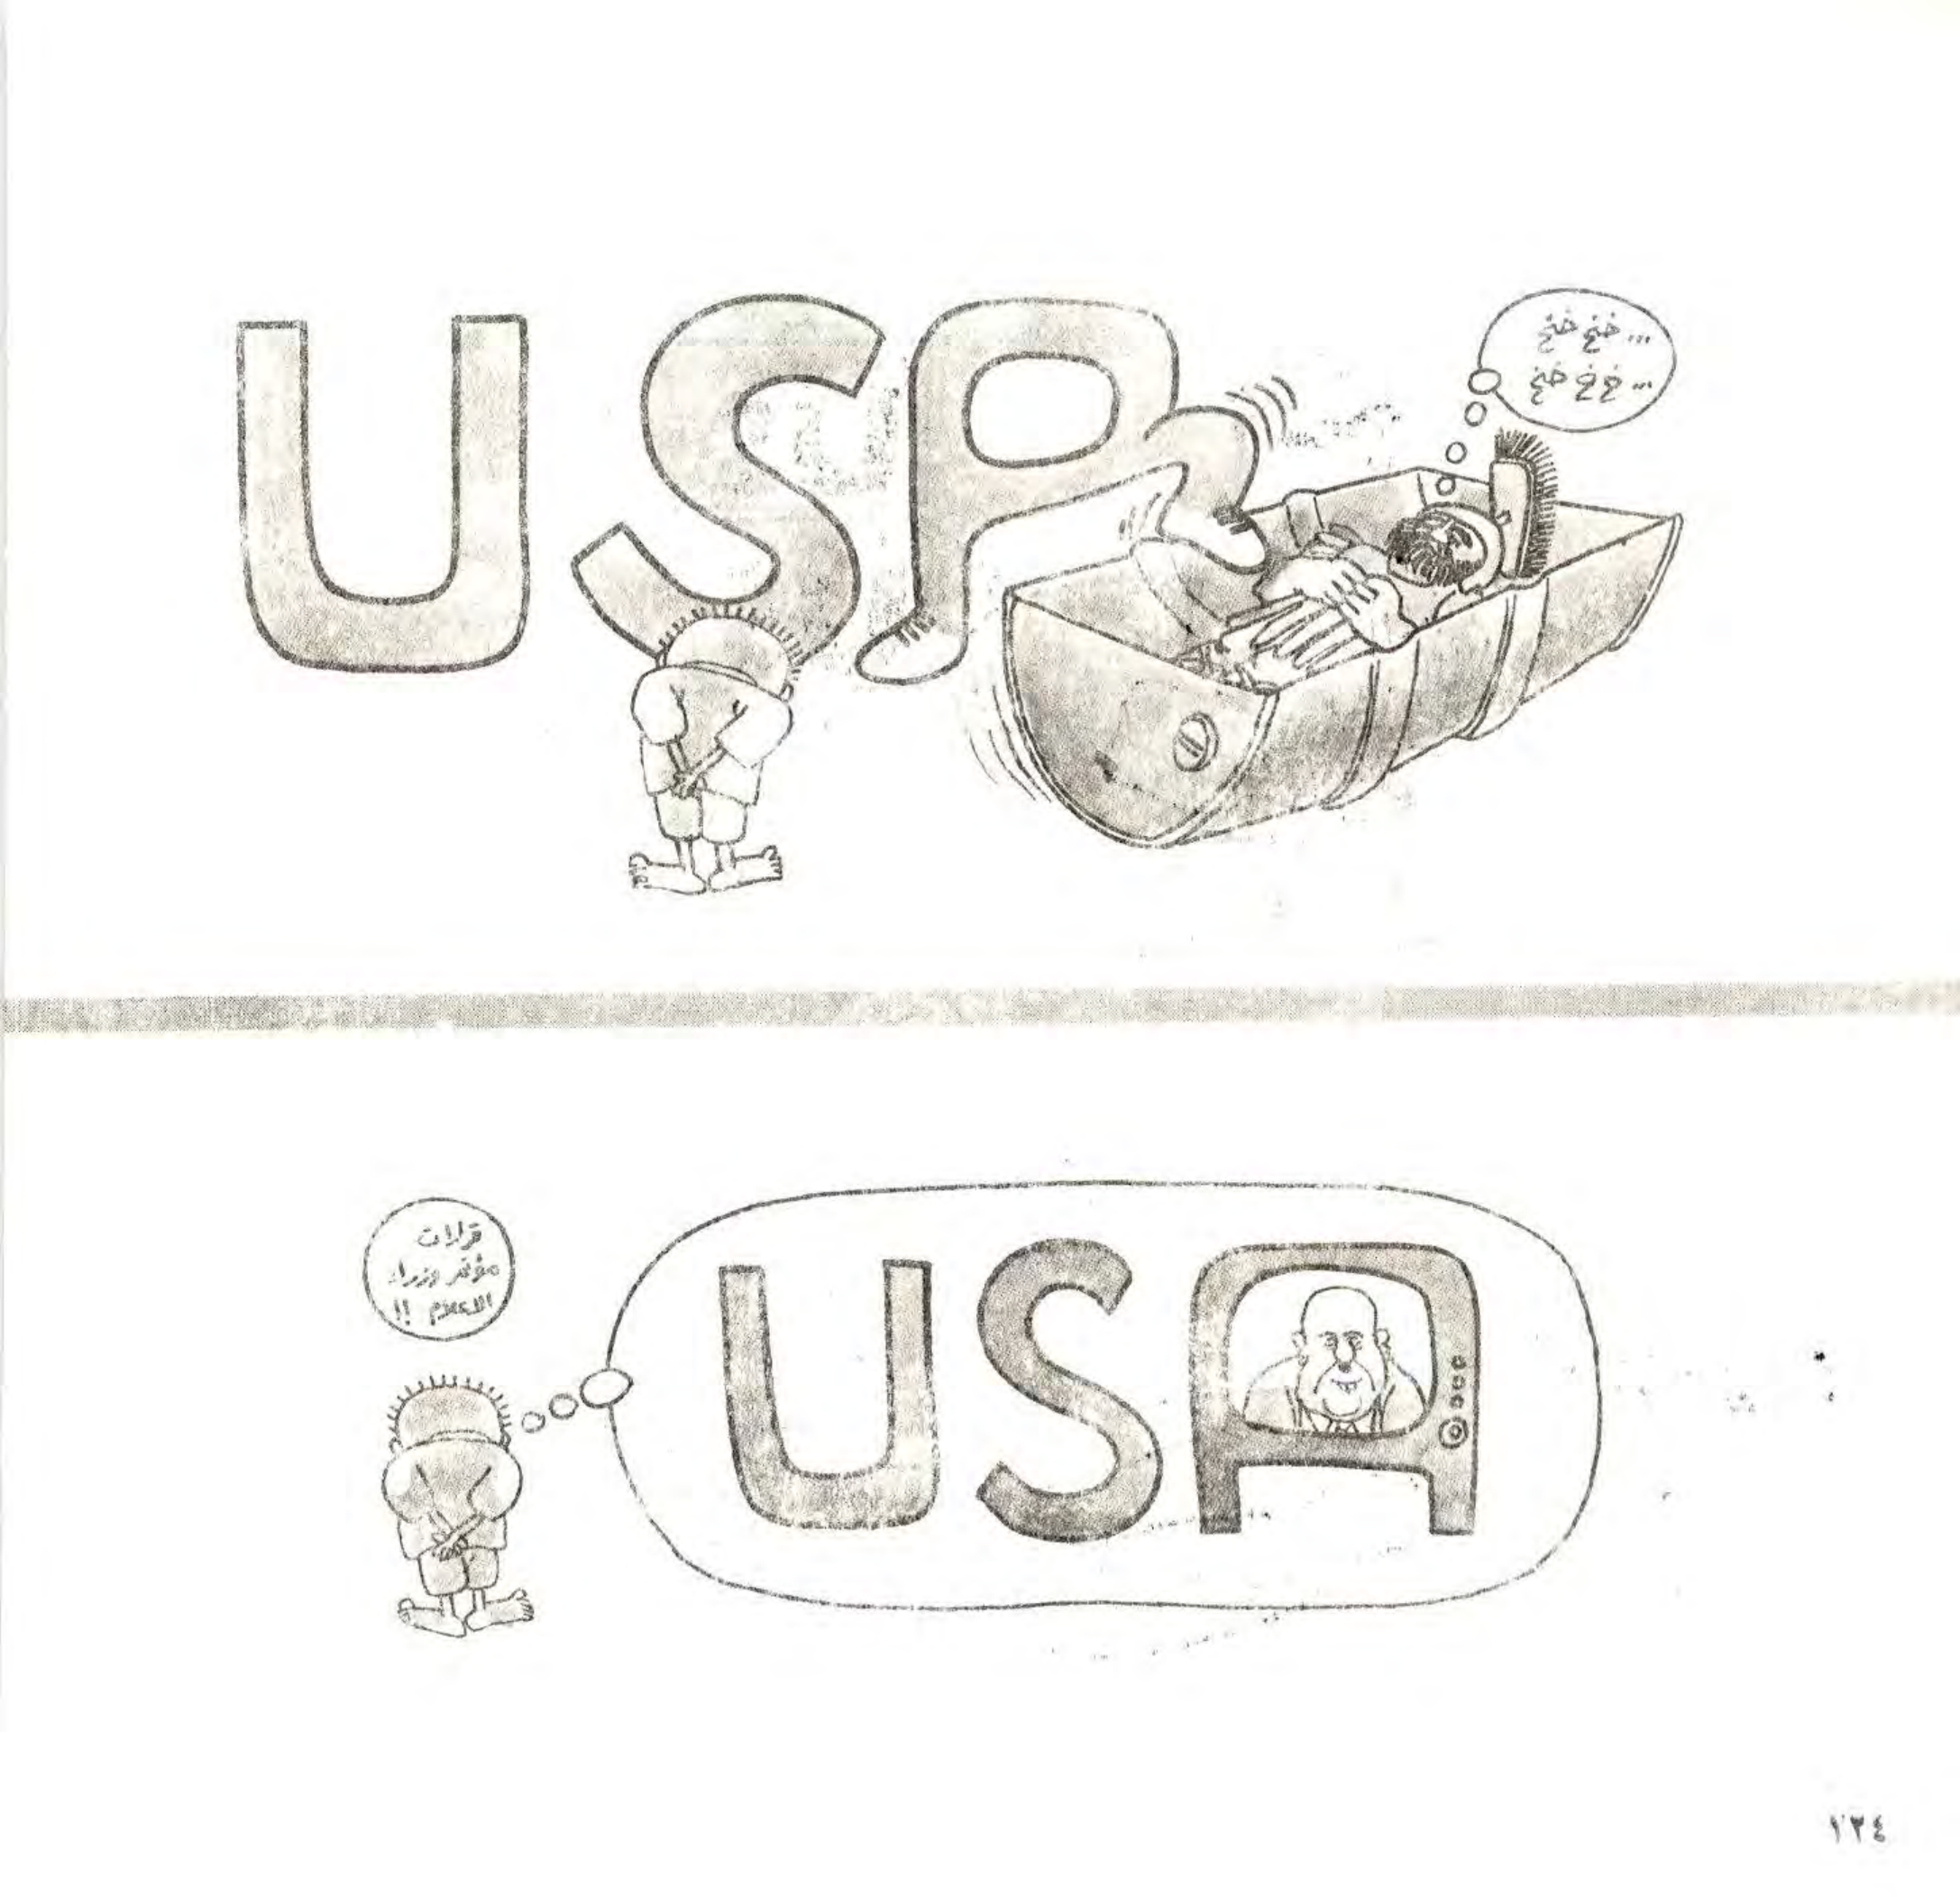 USA
... خخ خخ
... خخ خخ
قرارات
مؤتمر وزراء
الاعلام !!
USA
١٣٤